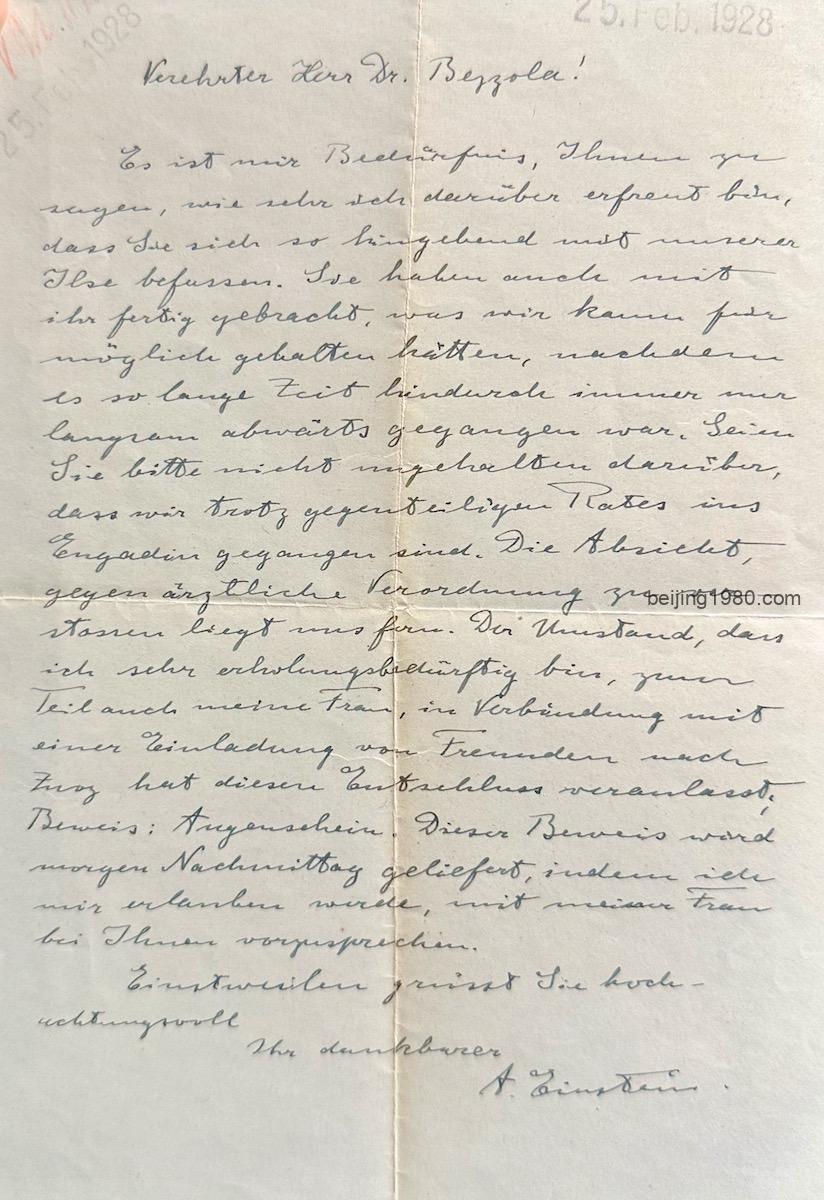 25. Feb. 1928
25. Feb. 1928
Verehrter Herr Dr. Bezzola!
Es ist mir Bedürfnis, Ihnen zu
sagen, wie sehr ich darüber erfreut bin,
dass Sie sich so hingebend mit unserer
Ilse befassen. Sie haben auch mit
ihr fertig gebracht, was wir kaum für
möglich gehalten hätten, nachdem
es so lange Zeit hindurch immer nur
langsam abwärts gegangen war. Seien
Sie bitte nicht ungehalten darüber,
dass wir trotz gegenteiligen Rates ins
Engadin gegangen sind. Die Absicht,
gegen ärztliche Verordnung zu
beijing1980.com
stossen liegt uns fern. Der Umstand, dass
ich sehr erholungsbedürftig bin, zum
Teil auch meine Frau, in Verbindung mit
einer Einladung von Freunden nach
Zuoz hat diesen Entschluss veranlasst;
Beweis: Augenschein. Dieser Beweis wird
morgen Nachmittag geliefert, indem ich
mir erlauben werde, mit meiner Frau
bei Ihnen vorzusprechen.
Einstweilen grüsst Sie hoch-
achtungsvoll
Ihr dankbarer
A. Einstein.